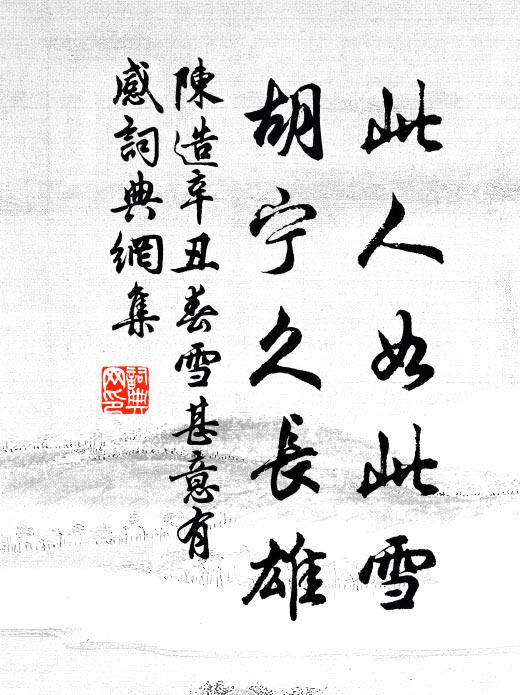 此人如此雪
胡宁久長雄
陳造辛丑春雪甚意有
感詞典網集
詞典
网印